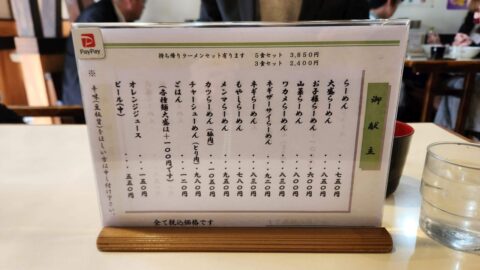 PayPay
持ち帰りラーメンセット有ります 5食セット 3,850円
3食セット 2,400円
御献立
らーめん ・・・七五〇
大盛らーめん ・・・八五〇
お子様らーめん ・・・六〇〇
山菜らーめん ・・・八三〇
ワカメらーめん ・・・八三〇
ネギらーめん ・・・八三〇
ネギザーサイらーめん ・・・九二〇
もやしらーめん ・・・七八〇
メンマらーめん ・・・九五〇
カウらーめん(豚肉) ・・・一〇五〇
チャーシューめん(とり肉) ・・・九八〇
ごはん ・・・一二〇
(各種麺大盛は+一〇〇円です)
オレンジジュース ・・・一五〇
ビール(中) ・・・五五〇
全て税込価格です